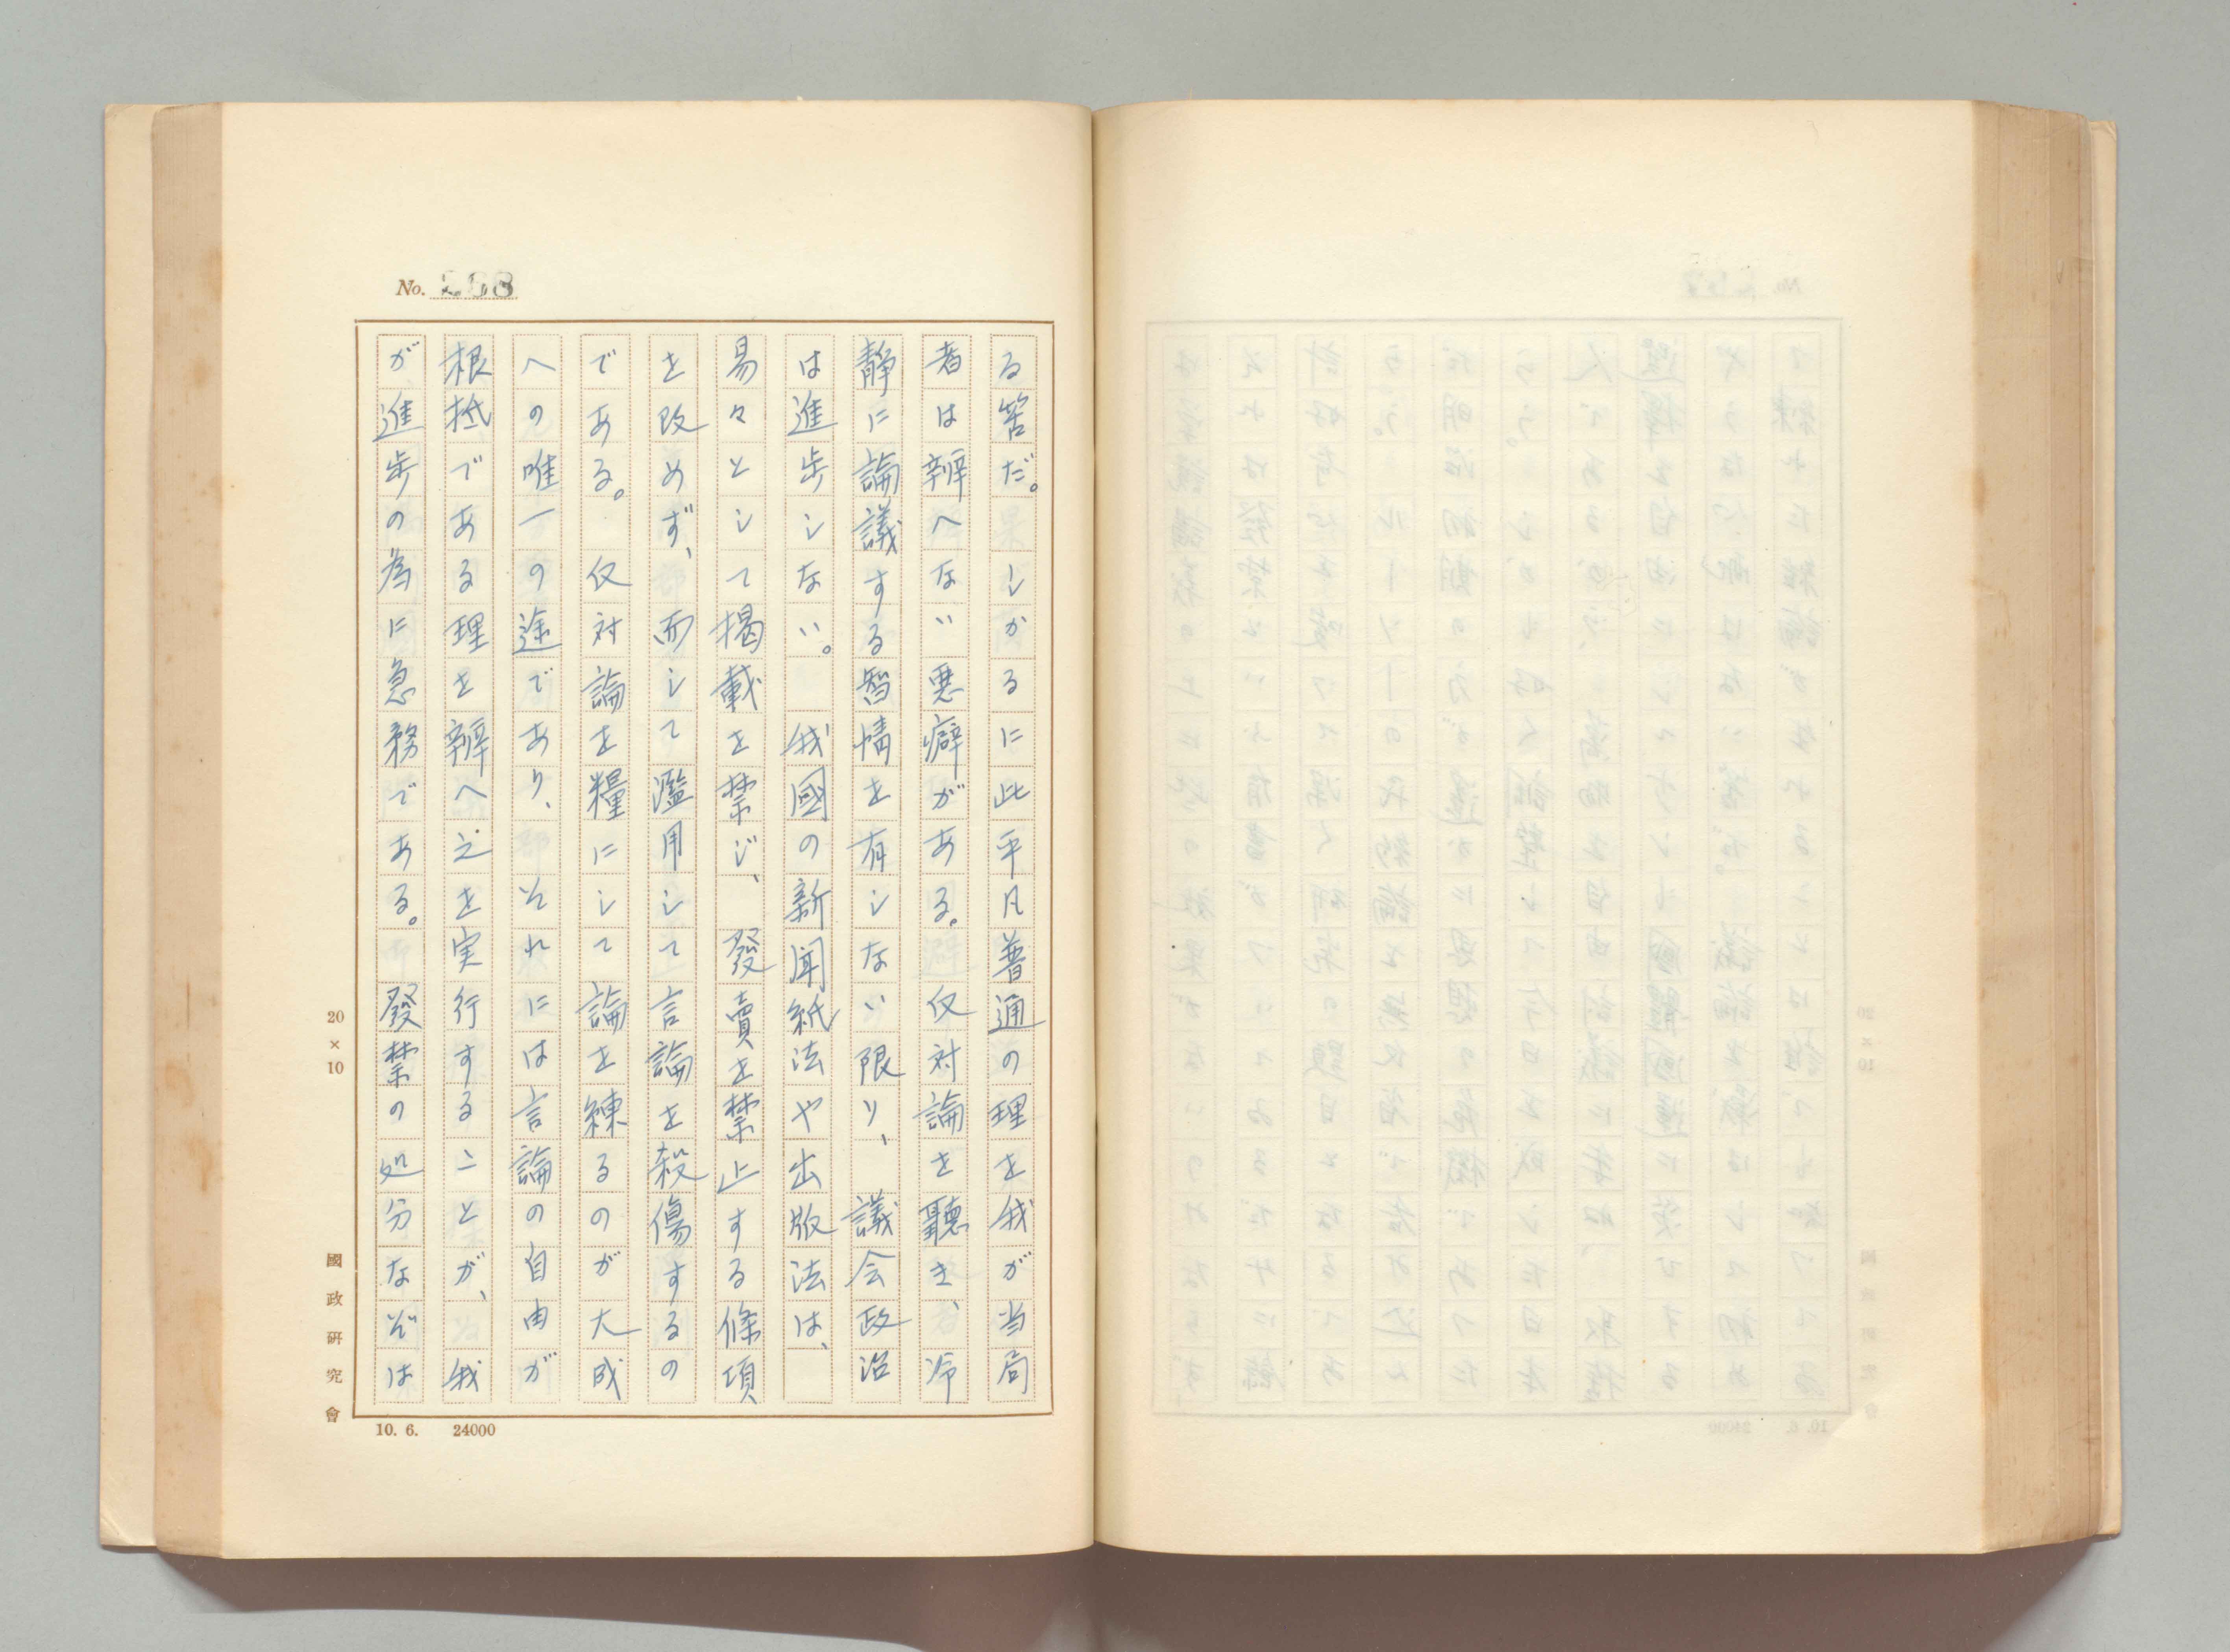 No. 268
る筈だ。しかるに此平凡普通の理を我が当局
者は辨へない悪癖がある。仅対論を聽き、冷
静に論議する智情を有しない限り、議会政治
は進歩しない。我國の新聞紙法や出版法は、
易々として掲載を禁じ、發賣を禁止する條項
を改めず、而して濫用して言論を殺傷するの
である。仅対論を糧にして論を練るのが大成
への唯一の途であり、それには言論の自由が
根抵である理を辨へ之を実行することが、我
が進歩の為に急務である。發禁の処分なぞは
20×10
國政研究會
10.6. 24000